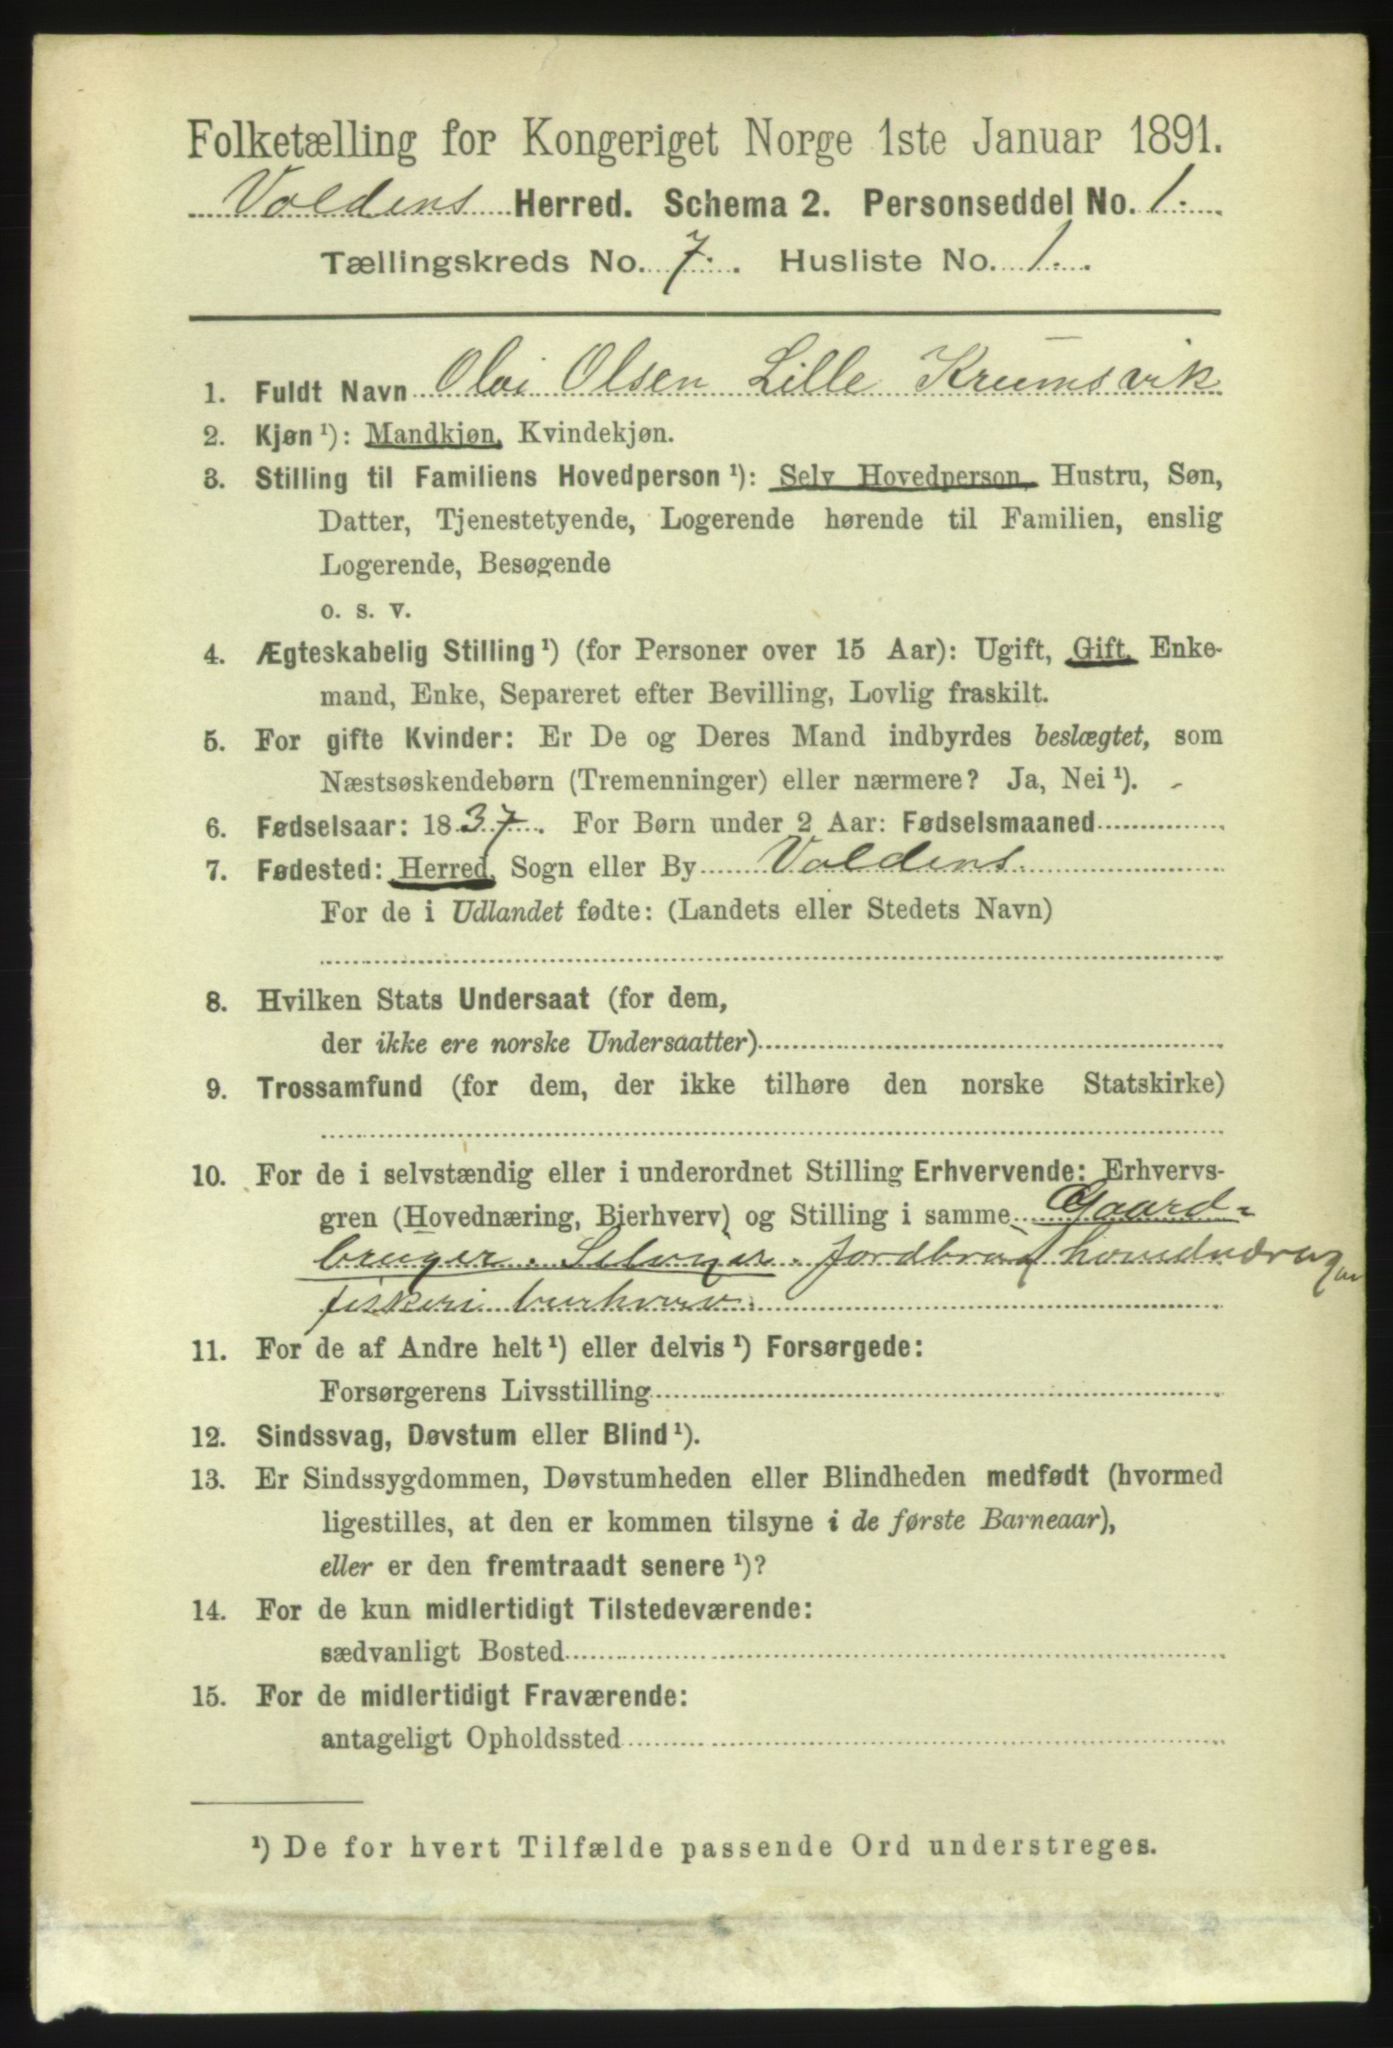 Folketælling for Kongeriget Norge 1ste Januar 1891.
Voldens Herred. Schema 2. Personseddel No. 1.
Tællingskreds No. 7. Husliste No. 1.
1. Fuldt Navn Olai Olsen Lille Krumsvik
2. Kjøn ¹): Mandkjøn, Kvindekjøn.
3. Stilling til Familiens Hovedperson ¹): Selv Hovedperson, Hustru, Søn,
Datter, Tjenestetyende, Logerende hørende til Familien, enslig
Logerende, Besøgende
o. s. v.
4. Ægteskabelig Stilling ¹) (for Personer over 15 Aar): Ugift, Gift, Enke-
mand, Enke, Separeret efter Bevilling, Lovlig fraskilt.
5. For gifte Kvinder: Er De og Deres Mand indbyrdes beslægtet, som
Næstsøskendebørn (Tremenninger) eller nærmere? Ja, Nei ¹). -
6. Fødselsaar: 1837. For Børn under 2 Aar: Fødselsmaaned
7. Fødested: Herred, Sogn eller By Voldens.
For de i Udlandet fødte: (Landets eller Stedets Navn)
8. Hvilken Stats Undersaat (for dem,
der ikke ere norske Undersaatter)
9. Trossamfund (for dem, der ikke tilhøre den norske Statskirke)
10. For de i selvstændig eller i underordnet Stilling Erhvervende: Erhvervs-
gren (Hovednæring, Bierhverv) og Stilling i samme Gaard-
bruger. Selveier. jordbrug hovednæring
fiskeri
11. For de af Andre helt ¹) eller delvis ¹) Forsørgede:
Forsørgerens Livsstilling
12. Sindssvag, Døvstum eller Blind ¹).
13. Er Sindssygdommen, Døvstumheden eller Blindheden medfødt (hvormed
ligestilles, at den er kommen tilsyne i de første Barneaar),
eller er den fremtraadt senere ¹)?
14. For de kun midlertidigt Tilstedeværende:
sædvanligt Bosted
15. For de midlertidigt Fraværende:
antageligt Opholdssted
¹) De for hvert Tilfælde passende Ord understreges.